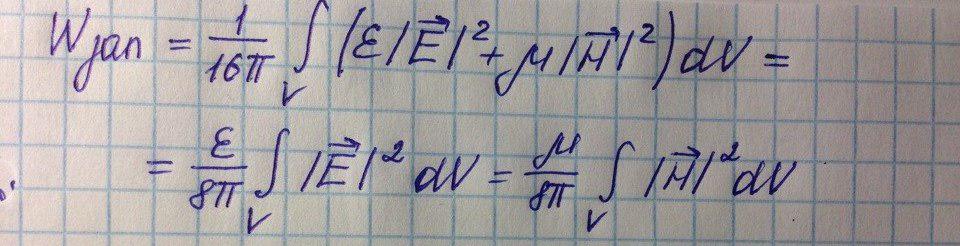 Wзап = 1/16π ∫V (ε|E⃗|² + μ|H⃗|²) dV =
= ε/8π ∫V |E⃗|² dV = μ/8π ∫V |H⃗|² dV